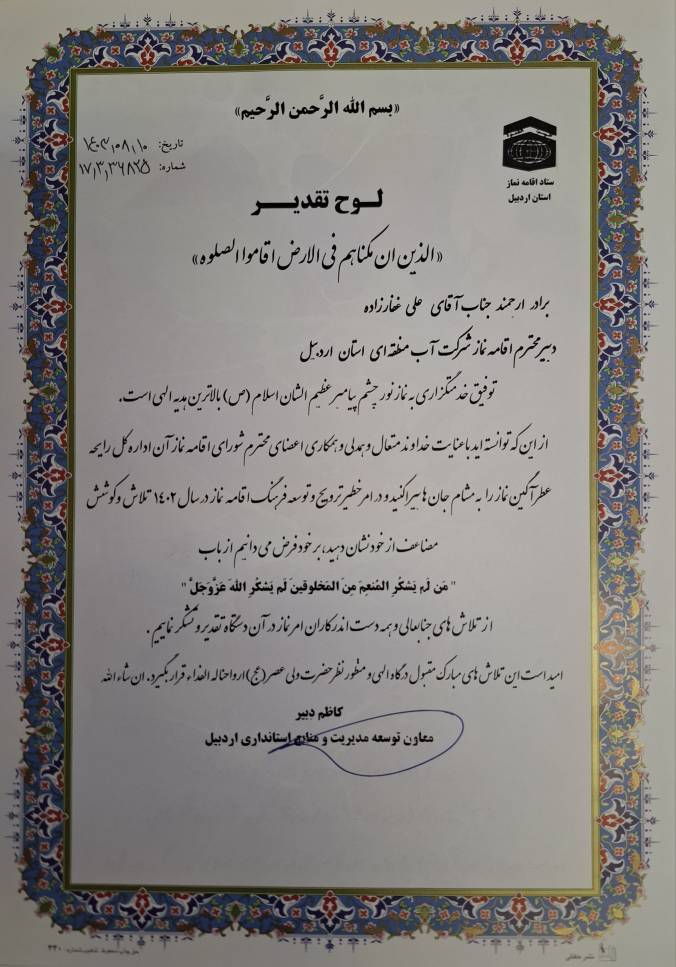 «بسم الله الرَّحمن الرَّحیم»
تاریخ: ۱۴۰۳/۰۸/۱۰
شماره: ۱۷/۳/۳۶۸۲۵
ستاد اقامه نماز
استان اردبیل
لوح تقدیر
«الذین ان مکناهم فی الارض اقاموا الصلوه»
برادر ارجمند جناب آقای علی غفارزاده
دبیر محترم اقامه نماز شرکت آب منطقه ای استان اردبیل
توفیق خدمتگزاری به نماز نور چشم پیامبر عظیم الشان اسلام (ص) بالاترین هدیه الهی است.
از این که توانسته اید با عنایت خداوند متعال و همدلی و همکاری اعضای محترم شورای اقامه نماز آن اداره کل رایحه
عطرآگین نماز را به مشام جان ها بپراکنید و در امر خطیر ترویج و توسعه فرهنگ اقامه نماز در سال ۱۴۰۲ تلاش و کوشش
مضاعف از خود نشان دهید، بر خود فرض می دانیم از باب
" مَن لَم یَشکُرِ المُنعِمَ مِنَ المَخلوقینَ لَم یَشکُرِ اللهَ عَزَّوَجَلَّ "
از تلاش های جنابعالی و همه دست اندرکاران امر نماز در آن دستگاه تقدیر و تشکر نماییم.
امید است این تلاش های مبارک مقبول درگاه الهی و منظور نظر حضرت ولی عصر (عج) ارواحنا له الفداء قرار بگیرد. ان شاء الله
کاظم دبیر
معاون توسعه مدیریت و منابع استانداری اردبیل
نشر حقانی